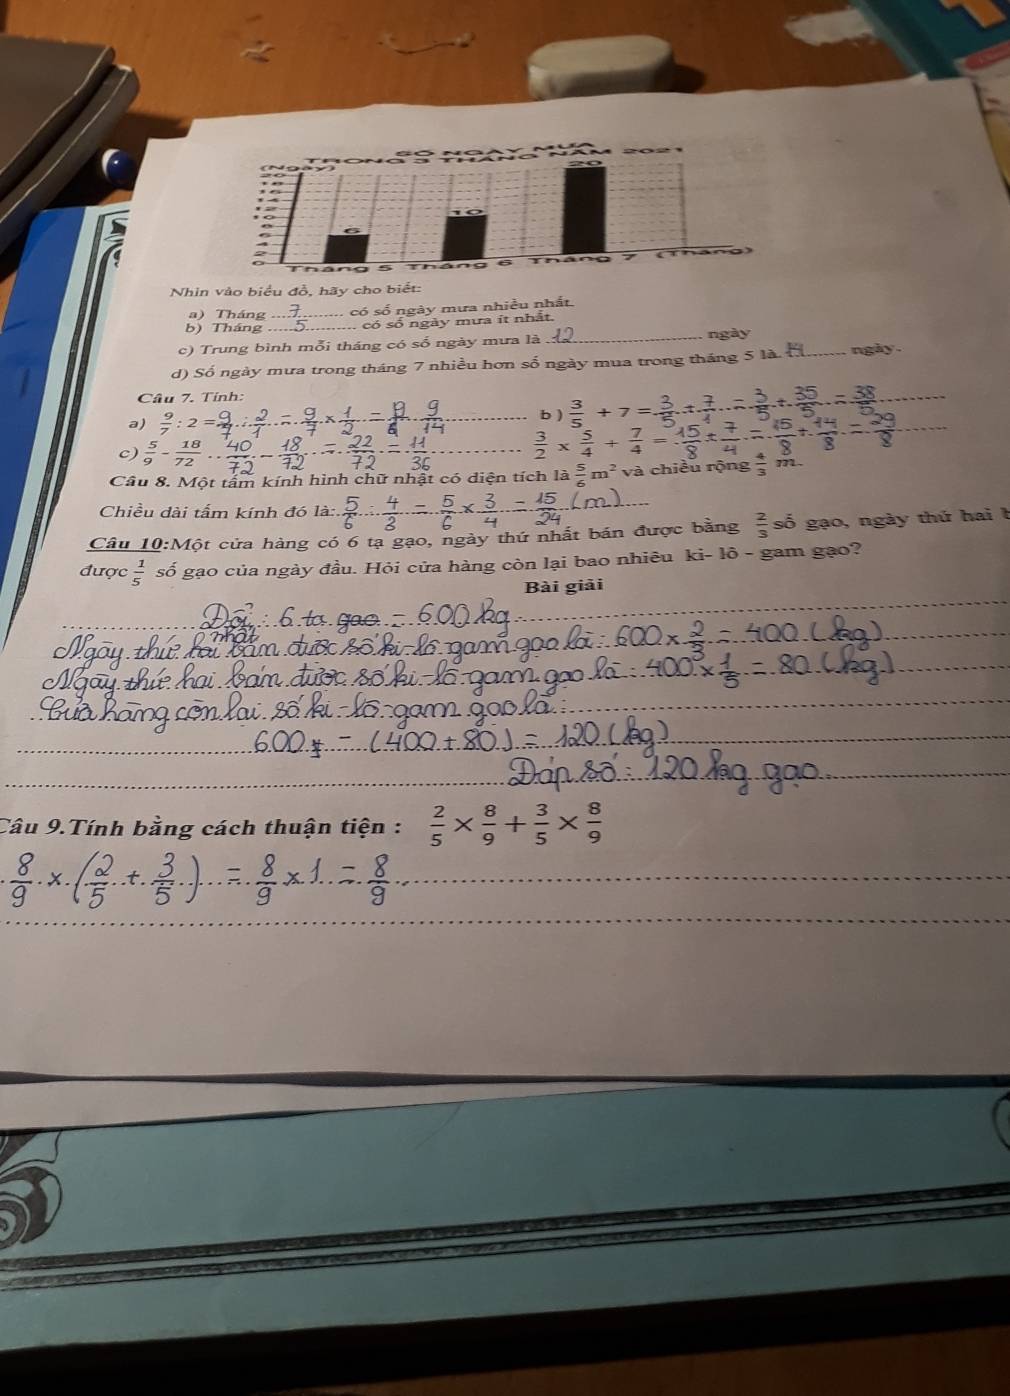 SỐ NGÀY MƯA
TRONG 3 THÁNG NĂM 2021
(Ngày)
20
20
18
16
14
12
10
10
8
6
6
4
2
0
Tháng 5 Tháng 6 Tháng 7 (Tháng)
Nhìn vào biểu đồ, hãy cho biết:
a) Tháng ...7......... có số ngày mưa nhiều nhất.
b) Tháng .....5.......... có số ngày mưa ít nhất.
c) Trung bình mỗi tháng có số ngày mưa là .12.................... ngày
d) Số ngày mưa trong tháng 7 nhiều hơn số ngày mua trong tháng 5 là. 14........ ngày.
Câu 7. Tính:
a) 9/7 : 2 = 9/7 : 2/1 = 9/7 × 1/2 = 9/14 b ) 3/5 + 7 = 3/5 + 7/1 = 3/5 + 35/5 = 38/5
c) 5/9 - 18/72 40/72 - 18/72 = 22/72 = 11/36 3/2 × 5/4 + 7/4 = 15/8 + 7/4 = 15/8 + 14/8 = 29/8
Câu 8. Một tấm kính hình chữ nhật có diện tích là 5/6 m² và chiều rộng 4/3 m.
Chiều dài tấm kính đó là: 5/6 : 4/3 = 5/6 × 3/4 = 15/24 (m)
Câu 10:Một cửa hàng có 6 tạ gạo, ngày thứ nhất bán được bằng 2/3 số gạo, ngày thứ hai
được 1/5 số gạo của ngày đầu. Hỏi cửa hàng còn lại bao nhiêu ki- lô - gam gạo?
Bài giải
Đổi: 6 tạ gạo = 600 kg
Ngày thứ hai nhất bán được số ki-lô gam gạo là: 600 × 2/3 = 400 (kg)
Ngày thứ hai bán được số ki-lô-gam gạo là: 400 × 1/5 = 80 (kg)
Cửa hàng còn lại số ki-lô-gam gạo là:
600 - (400 + 80) = 120 (kg)
Đáp số: 120 kg gạo
Câu 9.Tính bằng cách thuận tiện : 2/5 × 8/9 + 3/5 × 8/9
8/9 × (2/5 + 3/5) = 8/9 × 1 = 8/9